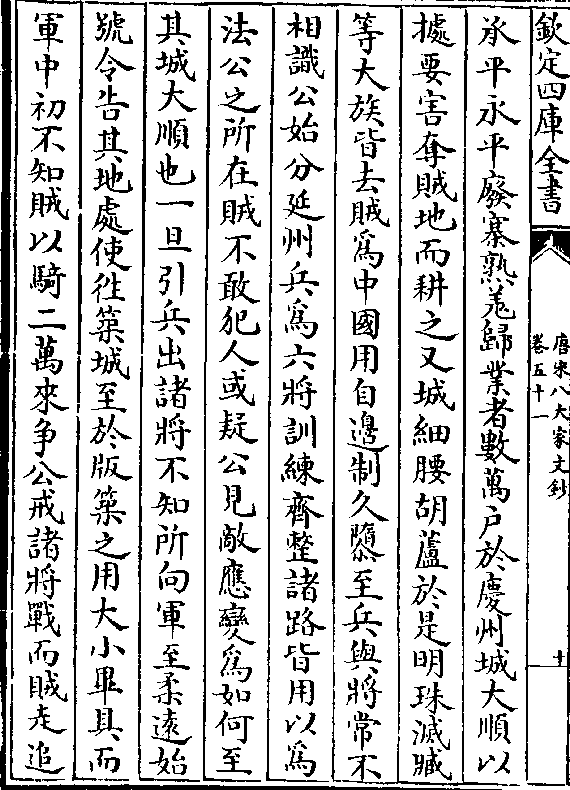 欽定四庫全書
唐宋八大家文鈔
卷五十一
十
承平永平廢寨熟羌歸業者數萬户於慶州城大順以
據要害奪賊地而耕之又城細腰胡蘆於是明珠滅臧
等大族皆去賊爲中國用自邊制久隳至兵與將常不
相識公始分延州兵爲六將訓練齊整諸路皆用以爲
法公之所在賊不敢犯人或疑公見敵應變爲如何至
其城大順也一旦引兵出諸將不知所向軍至柔遠始
號令告其地處使徃築城至於版築之用大小畢具而
軍中初不知賊以騎二萬來争公戒諸將戰而賊走追